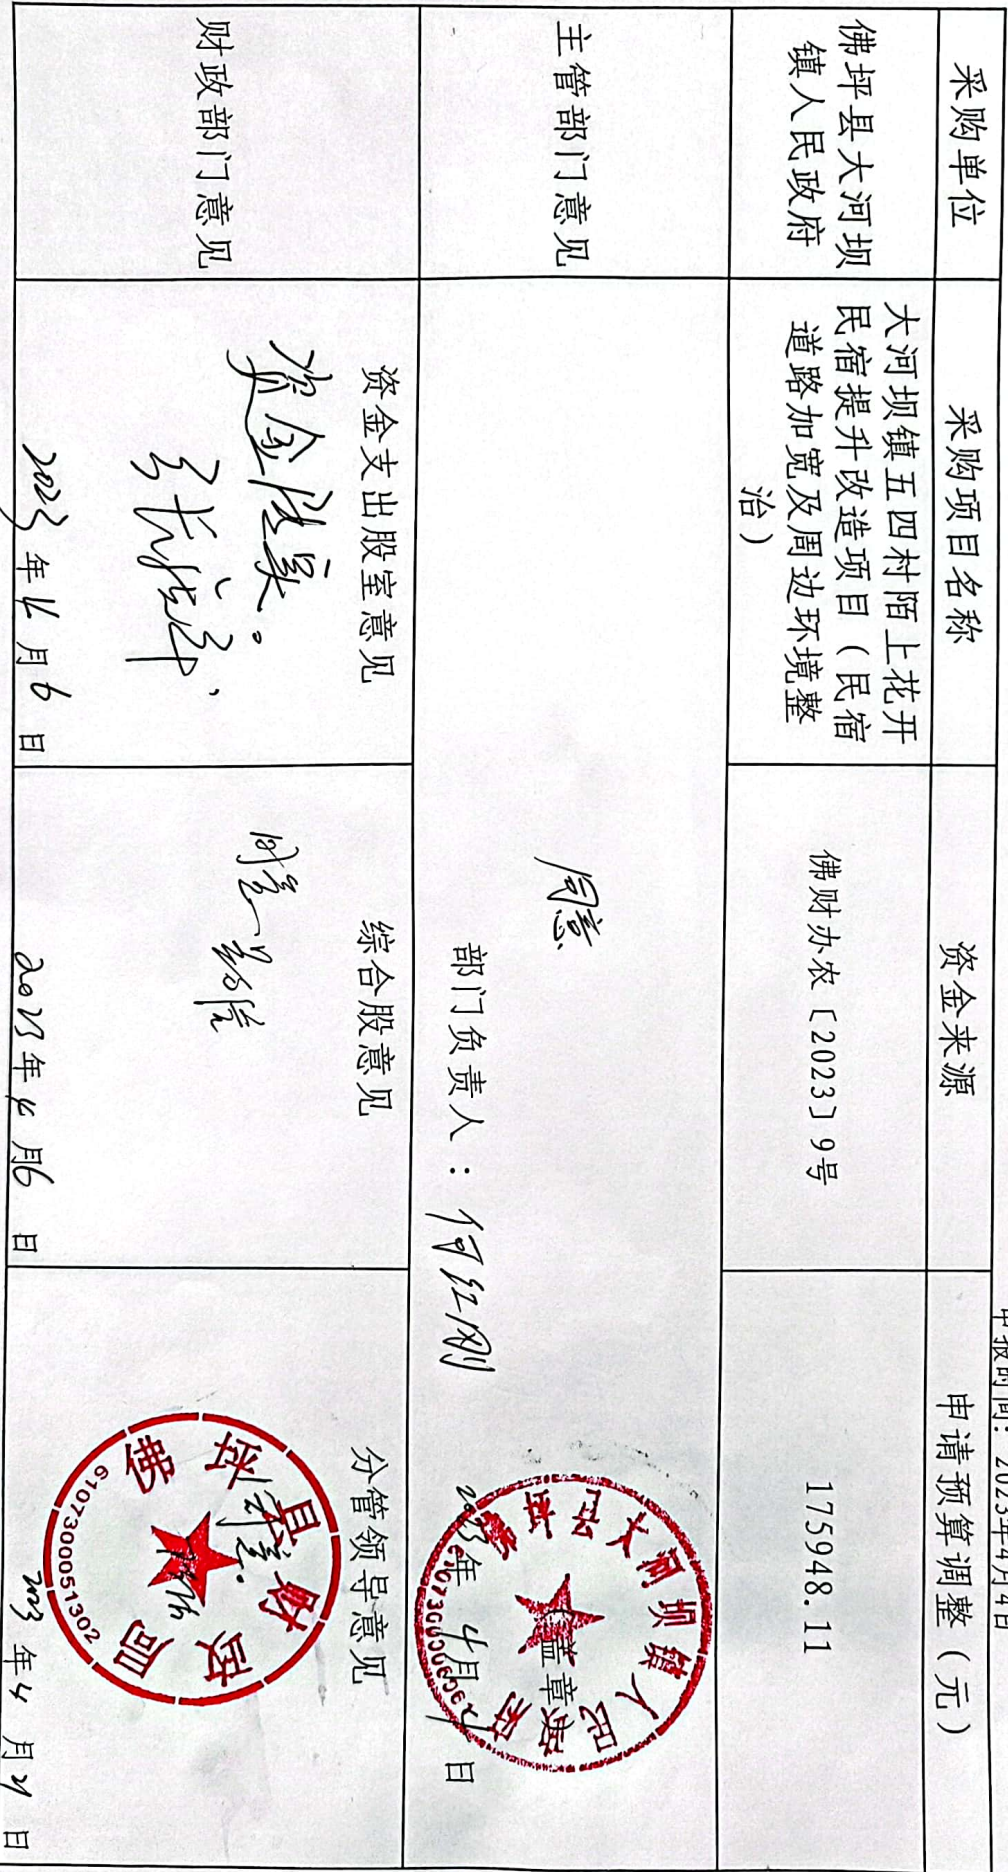 申报时间：2023年4月4日
采购单位
采购项目名称
资金来源
申请预算调整（元）
佛坪县大河坝
镇人民政府
大河坝镇五四村陌上花开
民宿提升改造项目（民宿
道路加宽及周边环境整
治）
佛财办农〔2023〕9号
175948.11
主管部门意见
同意
部门负责人：何红刚
（盖章）
2023年4月 日
佛坪县大河坝镇人民政府
财政部门意见
资金支出股室意见
资金落实。
2023年4月6日
综合股意见
同意
2023年4月6日
分管领导意见
同意.
佛坪县财政局
6107300051302
2023年4月 日